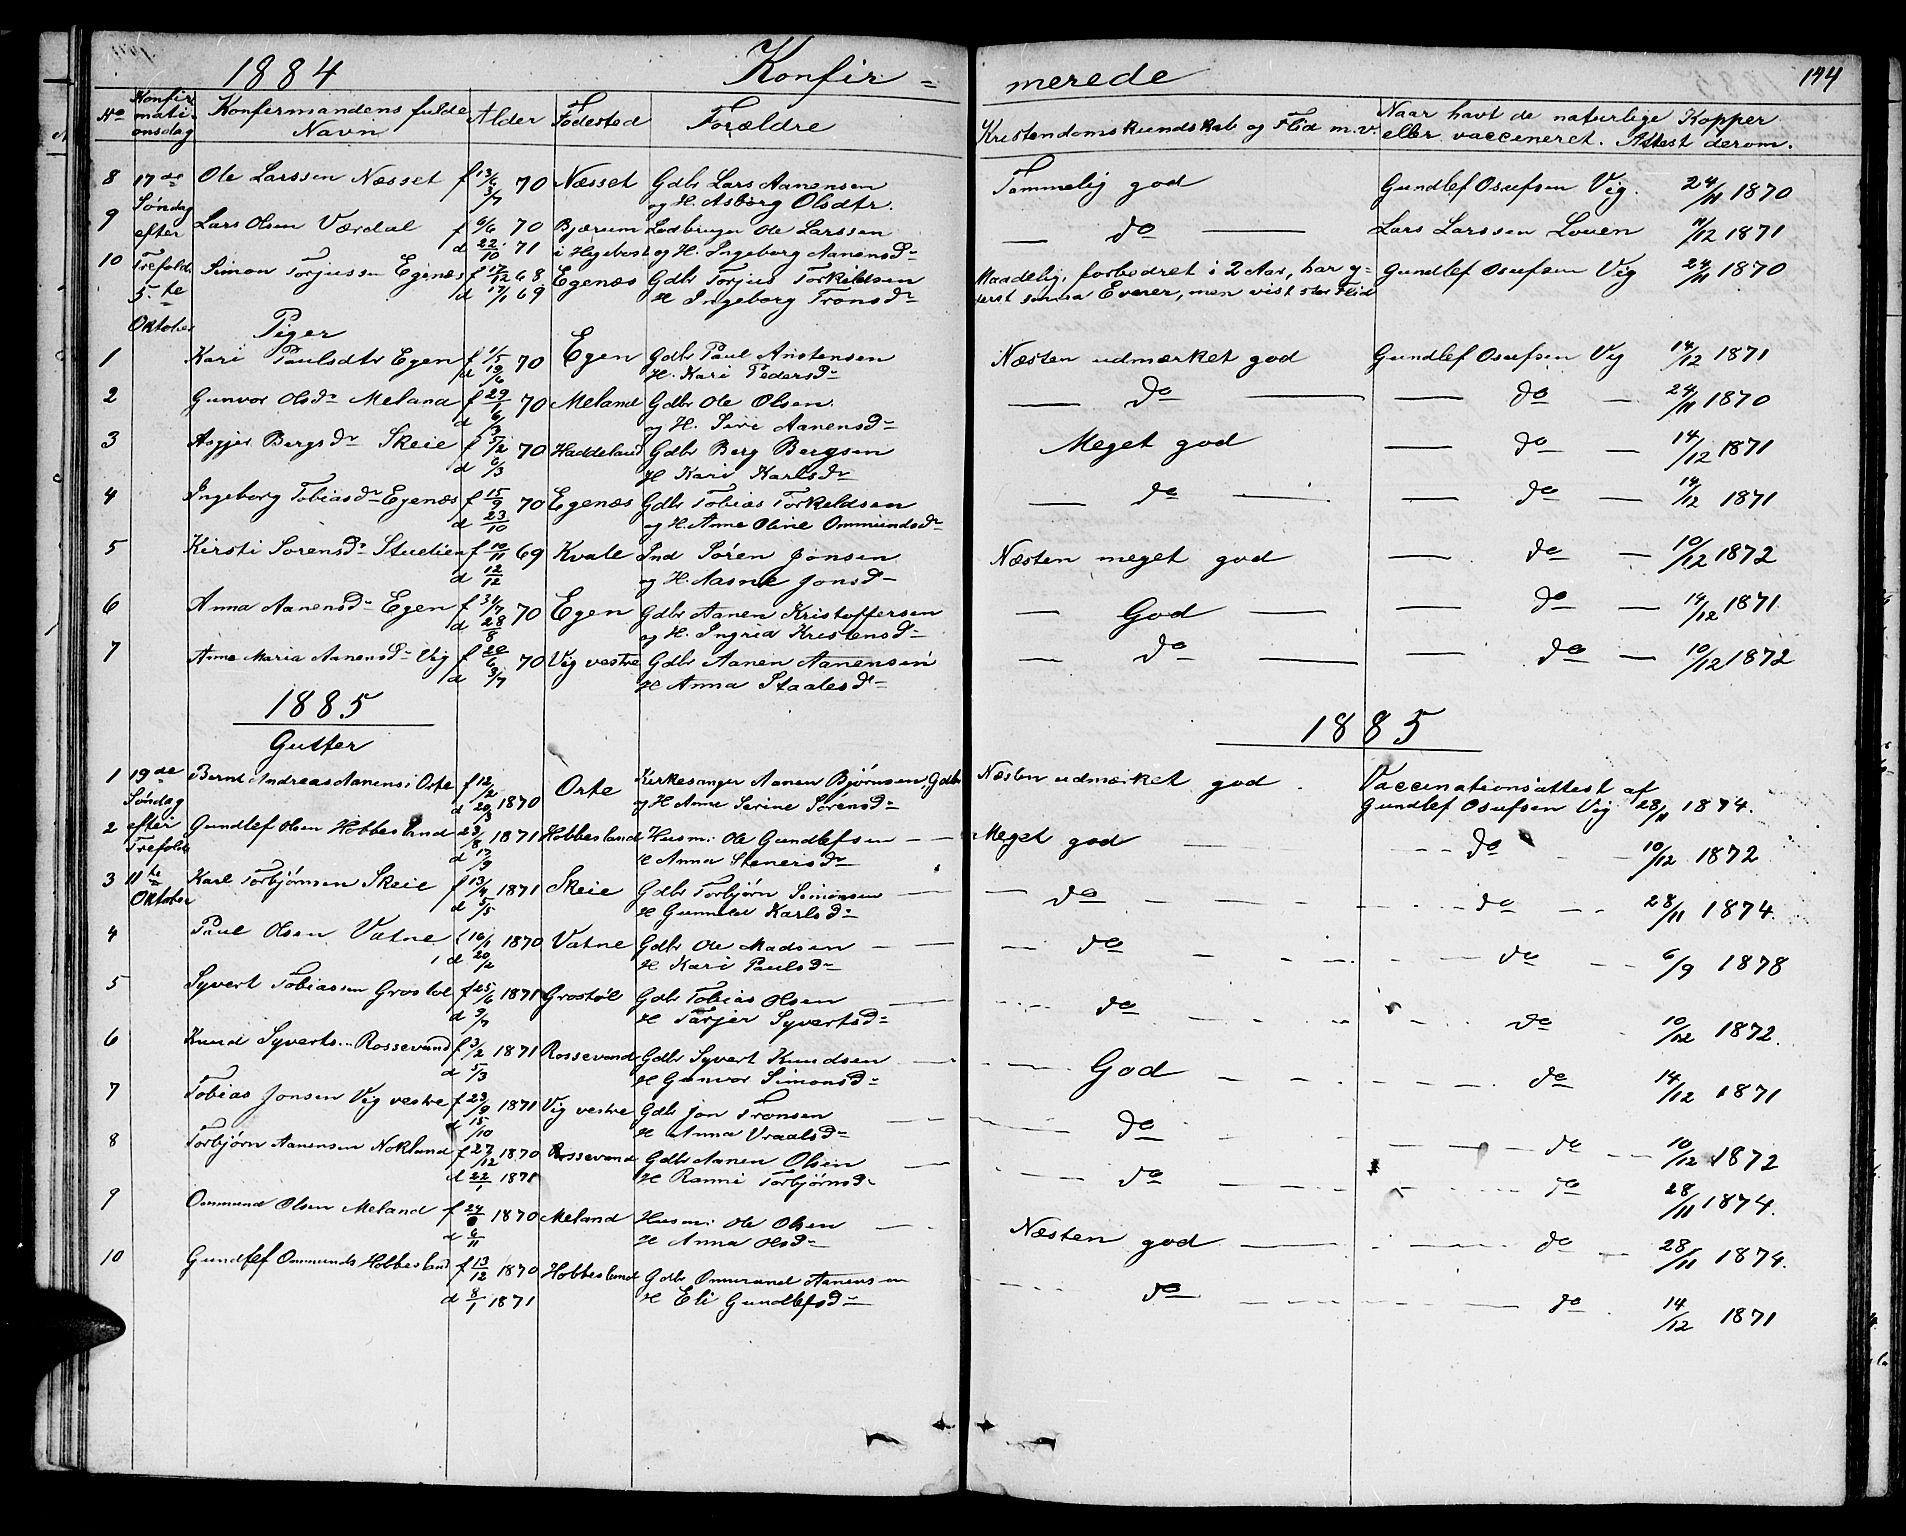 1884 Konfir = merede 144
No Konfir mati- onsdag Konfirmandens fulde Navn Alder Fødested Forældre Kristendomskundskab og Flid m.v. Naar havt de naturlige Kopper eller vaccineret. Attest derom.
8 17de Ole Larssen Næsset f 70 Næsset Gdbr Lars Aanensen Temmelig god Gundlef Osufsen Vig. 24/11 1870
Søndag og H. Asborg Olsdtr.
9 efter Lars Olsen Værdal f 6/6 70 Bjærum Ledbruger Ole Larssen — do — Lars Larssen Louen 11/12 1871
d 22/10 71 i Hægebost og H. Ingeborg Aanensdr
10 Trefoldi Simon Torjussen Egenæs f 17/12 68 Egenæs Gdbr Torjus Torkeldsen Maadelig, forbedret i 2 Aar, har y- Gundlef Osufsen Vig 24/11 1870
5te d 17/1 69 H Ingeborg Tronsdr derst smaa Evner, men vist stor Flid
Oktober Piger
1 Kari Paulsdtr Egen f 1/5 70 Egen Gdbr Paul Aristensen Næsten udmærket god Gundlef Osufsen Vig 14/12 1871
d 19/6 H. Kari Pedersdr
2 Gunvor Olsdr Meland f 29/1 70 Meland Gdbr Ole Olsen — do — — do — 24/11 1870
d 6/3 og H. Siri Aanensdr
3 Asgjer Bergsdr Skeie f 5/2 70 Haddeland Gdbr Berg Bergsen Meget god — do — 14/12 1871
d 6/3 H Kari Karlsdr
4 Ingeborg Tobiasdr Egenæs f 15/9 70 Egenæs Gdbr Tobias Torkeldsen — do — — do — 14/12 1871
d 23/10 og H. Anne Oline Ommundsdr
5 Kirsti Sørensdr Stuelien f 10/11 69 Kvale Ind Søren Jonsen Næsten meget god — do — 10/12 1872
d 12/12 og H. Aasne Jonsdr
6 Anna Aanensdr Egen f 31/7 70 Egen Gdbr Aanen Kristoffersen — God — — do — 14/12 1871
d 28/8 og H. Ingrid Kristensdr
7 Anne Maria Aanensdr Vig f 20/6 70 Vig vestre Gdbr Aanen Aanensen — do — — do — 10/12 1872
d 3/7 H Anna Staalesdr
1885 1885
Gutter
1 19de Bernt Andreas Aanens: Orte f 12/2 Orte Kirkesanger Aanen Bjørnsen, Gdbr Næsten udmærket god. Vaccinationsattest af
Søndag d 29/3 1870 og H Anne Serine Sørensdr Gundlef Osufsen Vig 28/11 1874.
2 efter Gundlef Olsen Hobbesland 23/8 1871 Hobbesland Husm: Ole Gundlefsen Meget god do 10/12 1872
Trefoldi d 17/9 H Anna Stenersdr
3 11te Karl Torbjørnsen Skeie f 13/4 1871 Skeie Gdbr Torbjørn Simonsen — do — do 28/11 1874.
Oktober d 5/5 H Gunnild Karlsdr
4 Paul Olsen Vatne f 16/1 1870 Vatne Gdbr Ole Madsen — do — do 6/9 1878
d 20/2 H Kari Paulsdr
5 Syvert Tobiassen Grostøl f 25/6 1871 Grostøl Gdbr Tobias Olsen do do 10/12 1872.
d 9/7 H Tarjer Syvertsdr
6 Knud Syverts. Rossevand f 3/2 1871 Rossevand Gdbr Syvert Knudsen God do 14/12 1871
d 5/3 H Gunvor Simonsdr
7 Tobias Jonsen Vig vestre f 23/9 1871 Vig vestre Gdbr Jon Tronsen do do 10/12 1872
d 15/10 H Anna Vraalsdr
8 Torbjørn Aanensen Nokland f 27/12 1870 Rossevand Gdbr Aanen Olsen do do 28/11 1874.
d 22/1 1871 H Ranni Torbjørnsdr
9 Ommund Olsen Meland f 1870 Meland Husm: Ole Olsen Næsten god — do — 28/11 1874.
d 6/11 H Anna Olsdr
10 Gundlef Ommunds Hobbesland f 13/12 1870 Hobbesland Gdbr Ommund Aanensen do do 14/12 1871
d 8/1 1871 H Eli Gundlefsdr